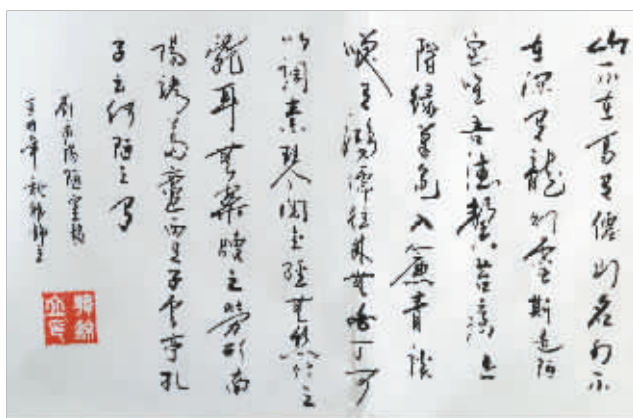 山不在高有僊则名水不
在深有龍则靈斯是陋
室唯吾德馨苔痕上
階緑草色入簾青談
笑有鴻儒往来無白丁可
以調素琴閲金經無丝竹之
亂耳無案牘之勞形南
陽諸葛廬西蜀子雲亭孔
子云何陋之有
劉禹锡陋室銘